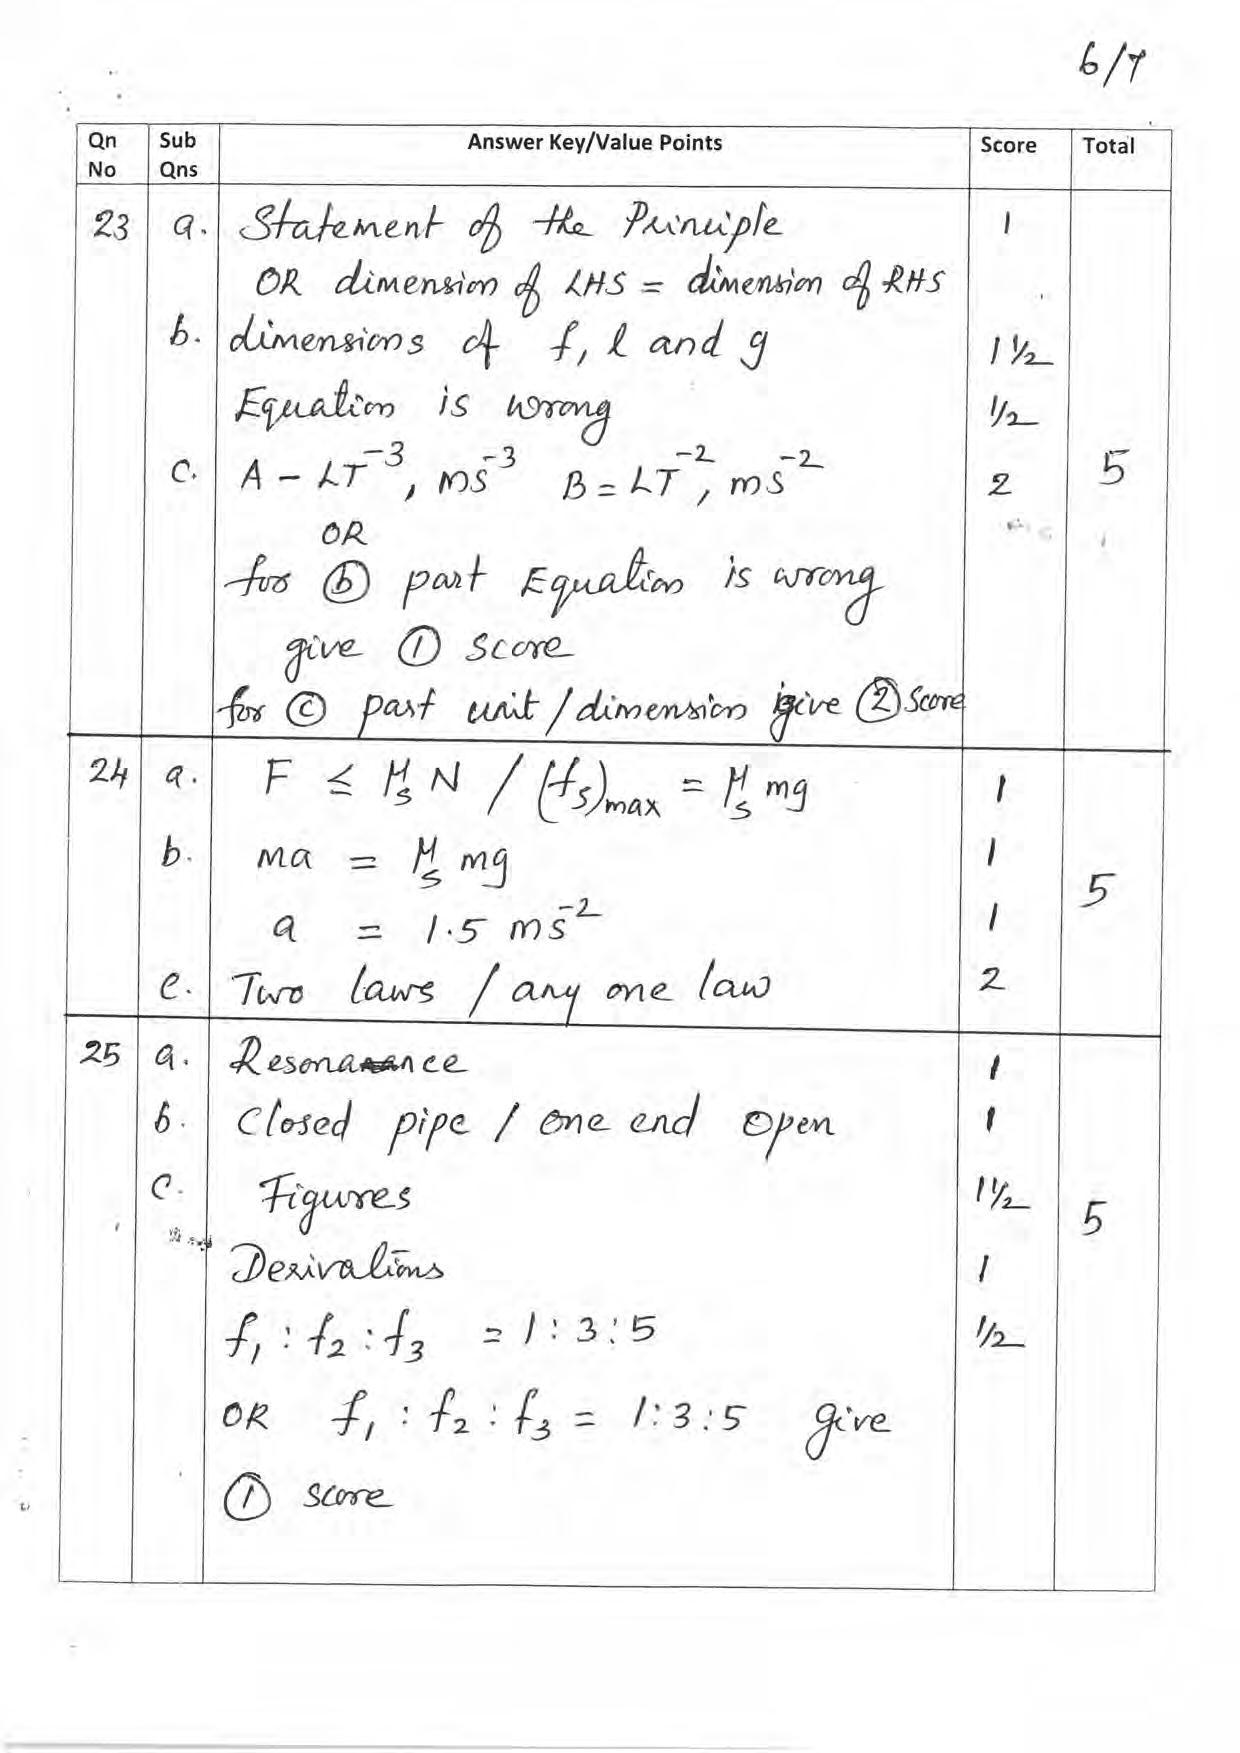 6/7
Qn No Sub Qns Answer Key/Value Points Score Total
23 a. Statement of the Principle 1
OR dimension of LHS = dimension of RHS
b. dimensions of f, l and g 1 ½
Equation is wrong ½
c. A – LT⁻³, ms⁻³ B = LT⁻², ms⁻² 2 5
OR
for ⓑ part Equation is wrong
give ① score
for ⓒ part unit / dimension give ② score
24 a. F ≤ μₛ N / (fₛ)max = μₛ mg 1
b. ma = μₛ mg 1 5
a = 1.5 ms⁻² 1
c. Two laws / any one law 2
25 a. Resonance 1
b. Closed pipe / one end open 1
c. Figures 1½ 5
Derivations 1
f₁ : f₂ : f₃ = 1 : 3 : 5 ½
OR f₁ : f₂ : f₃ = 1 : 3 : 5 give
① score